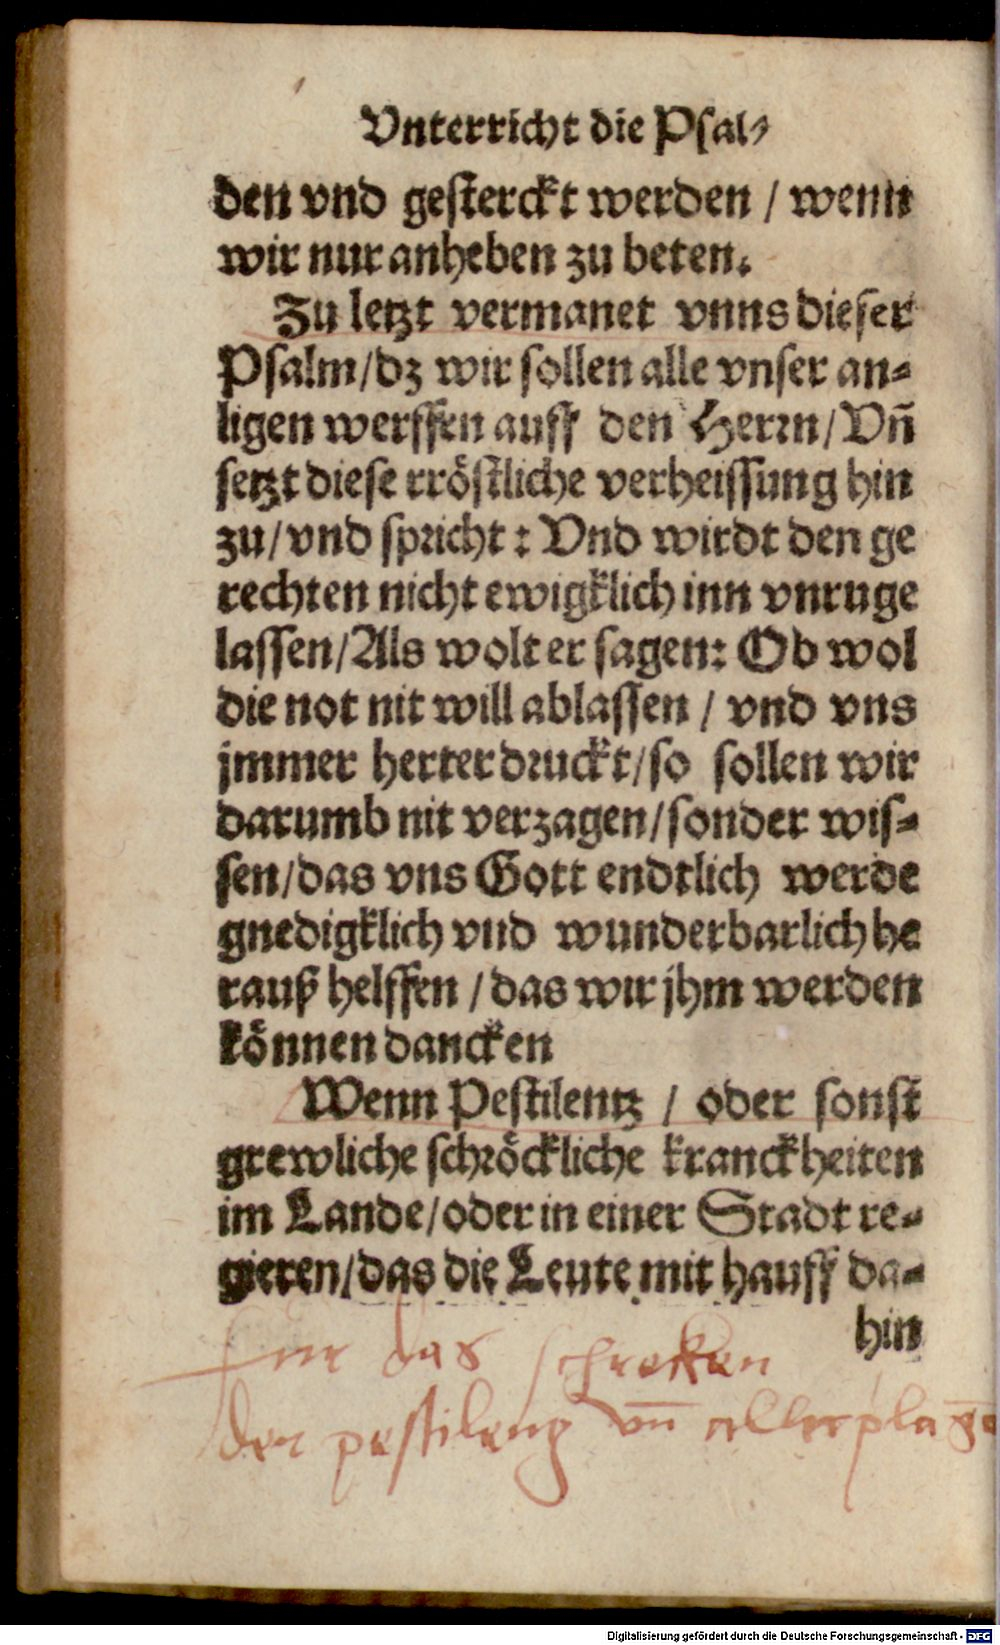 Vnterricht die Psal⸗
den vnd gesterckt werden / wenn
wir nur anheben zu beten.
Zu letzt vermanet vnns dieser
Psalm/dz wir sollen alle vnser an⸗
ligen werffen auff den Herrn/Vn̄
setzt diese rröstliche verheissung hin
zu/vnd spricht: Vnd wirdt den ge
rechten nicht ewigklich inn vnruge
lassen/Als wolt er sagen: Ob wol
die not nit will ablassen / vnd vns
jmmer herter druckt/so sollen wir
darumb nit verzagen/sonder wis⸗
sen/das vns Gott endtlich werde
gnedigklich vnd wunderbarlich he
rauß helffen /das wir jhm werden
können dancken
Wenn Pestilentz / oder sonst
grewliche schröckliche kranckheiten
im Lande/oder in einer Stadt re⸗
gieren/das die Leute mit hauff da⸗
hin
fur das schrecken
der pestilentz vn̄ aller plage
Digitalisierung gefördert durch die Deutsche Forschungsgemeinschaft - DFG